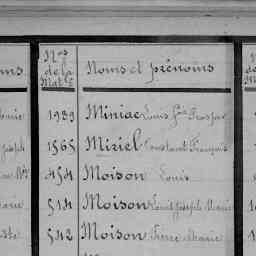 Nos
de la
Mat le
Noms et prénoms
1939 Miniac Louis Prosper
1565 Miziel Constant François
454 Moison Louis
514 Moison Louis Joseph Marie
542 Moison Pierre Marie